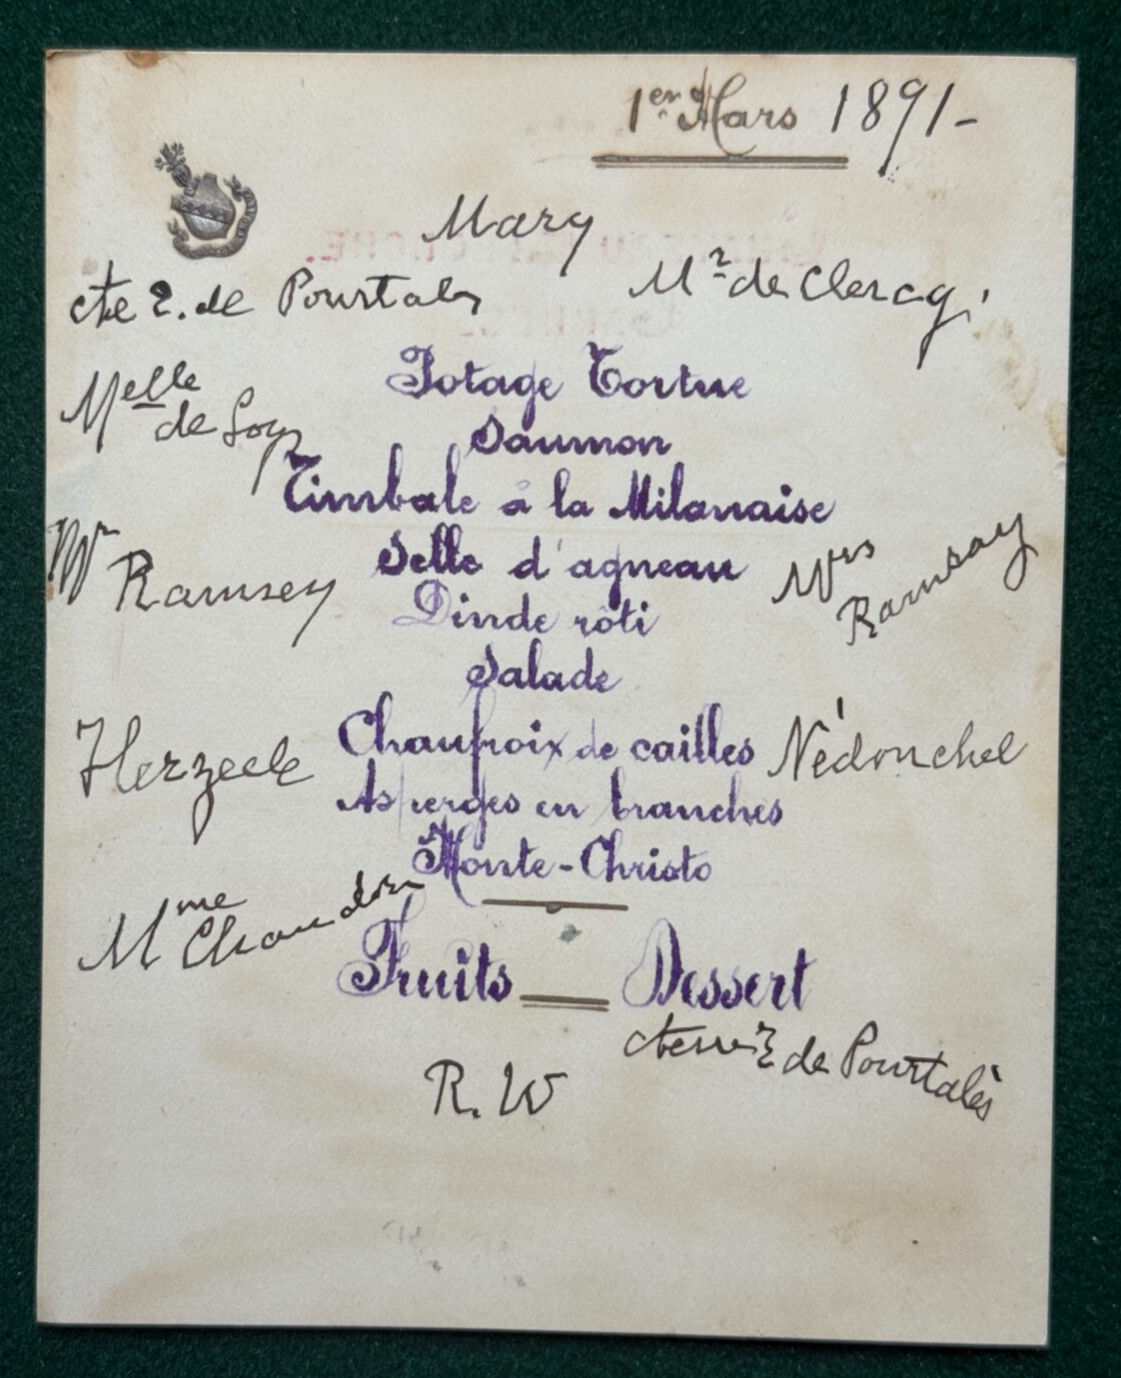 1er Mars 1891-
Mary
cte R. de Pourtalès
Mr de Clercq.
Melle
de Loys
Potage Tortue
Saumon
Timbale à la Milanaise
Selle d'agneau
Mr
Ramsey
Mrs
Ramsay
Dinde rôti
Salade
Herzeele
Chaufroix de cailles
Nédonchel
Asperges en branches
Monte-Christo
Mme
Chandon
Fruits — Dessert
de Pourtalès
R. W